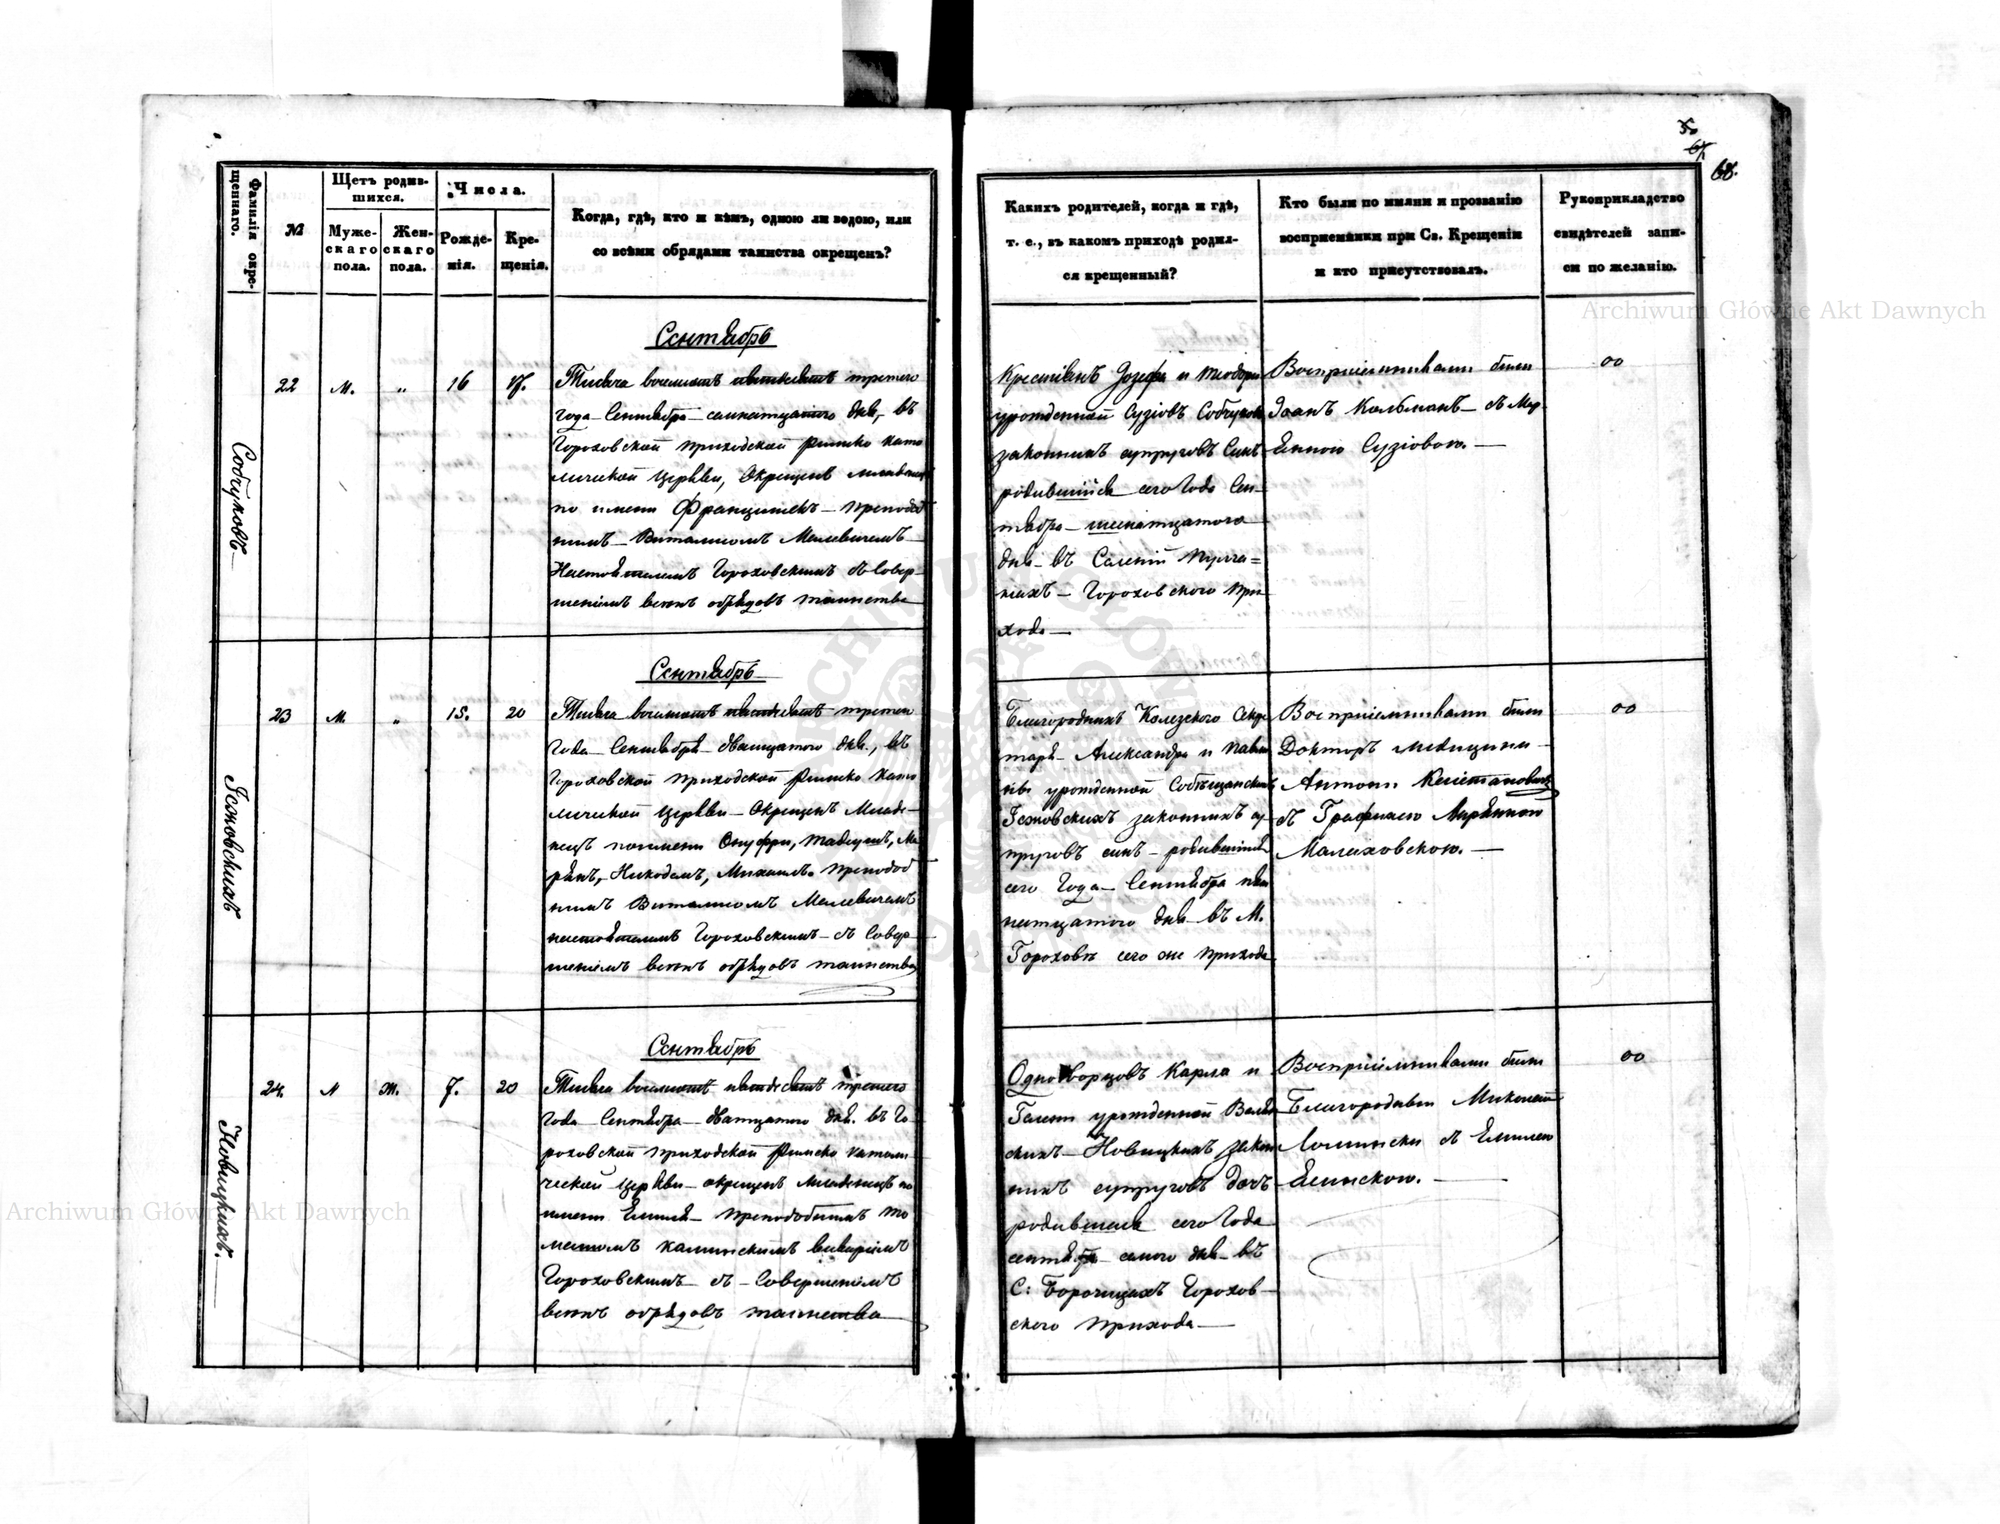 35
67
68.
Фамилія окре-
щеннаго.
№
Щетъ родив-
шихся.
Муже-
скаго
пола.
Жен-
скаго
пола.
Числа.
Рожде-
нія.
Кре-
щенія.
Когда, гдѣ, кто и кѣмъ, одною ли водою, или
со всѣми обрядами таинства окрещенъ?
Сентябрь
Собчуковъ
22
м.
"
16
17.
Тысяча восемьсотъ пятьдесятъ третего
года Сентября семнатцатого дня, въ
Гороховской приходской римско като
лической Церкви, Окрещенъ младенец
по имени Францишекъ преподоб
нымъ Виталисомъ Малевичемъ
Настоятелемъ Гороховскимъ съ Совер-
шеніемъ всѣхъ обрядовъ таинства
Сентябрь
23
м.
"
15.
20
Тысяча восемьсотъ пятьдесятъ третего
Года Сентября двацатого дня, въ
Гороховской приходской римско като
лической церкви Окрещенъ Младе-
нецъ по имени Онуфри,
Никодемъ, Михаилъ преподоб
нымъ Виталисомъ Малевичемъ
настоятелемъ Гороховскимъ съ Совер-
шеніемъ всѣхъ обрядовъ таинства
Сентябрь
Новицкихъ.
24.
м
ж.
7.
20
Тысяча восемьсотъ пятьдесятъ третего
года Сентября дватцатого дня въ Го-
роховской приходской римско католи-
ческой церкви окрещенъ Младенецъ по
имени Емилія преподобнымъ То
масомъ Калинскимъ викаріемъ
Гороховскимъ съ Совершеніемъ
всѣхъ обрядовъ таинства
Какихъ родителей, когда и гдѣ,
т. е., въ какомъ приходѣ родил-
ся крещенный?
Кто были по имяни и прозванію
воспріемники при Св. Крещеніи
и кто присутствовалъ.
Рукоприкладство
свидѣтелей запи-
си по желанію.
Крестьянъ Іозефа и Теодоры
урожденной Сузіовъ Собчуковъ
законныхъ супруговъ Сынъ
родившійся сего Года Сен-
тября шеснатцатого
дня въ Селеніи
Гороховского При
хода
Воспріемниками были
Іоанъ Кольманъ съ Мар
Сузіовою.
00
Благородныхъ Колезского Секре
таря Александра и
ны урожденной
законныхъ су-
пруговъ сынъ родившійся
сего Года Сентября пят
натцатого дня въ М.
Гороховѣ сего же прихода
Воспріемниками были
Докторъ медицины
Антони
съ Графинею
Малаховскою.
00
Однодворцовъ Карла и
урожденной
Новицкихъ закон
ныхъ супруговъ дочъ
родившаяся сего Года
сентября семого дня въ
С: Борочицахъ Горохов
ского прихода
Воспріемниками были
Благородныи Миколай
съ Емилею
00
Archiwum Główne Akt Dawnych
Archiwum Główne Akt Dawnych